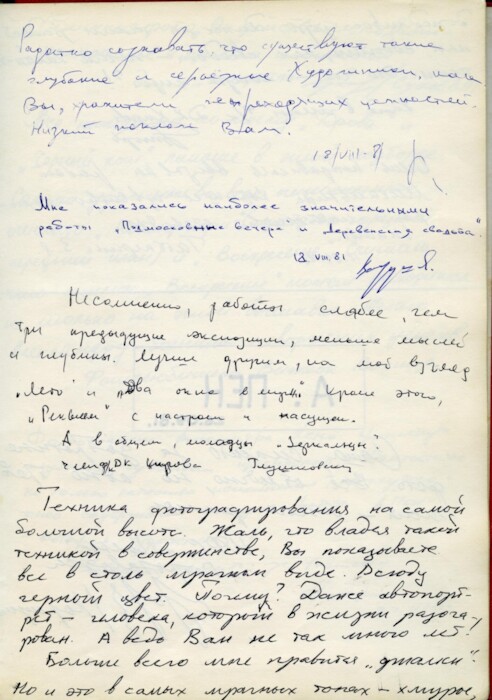 Радостно сознавать, что существуют такие
глубокие и серьёзные Художники, как
Вы, хранители непреходящих ценностей.
Низкий поклон Вам.
18/VIII-81
Мне показались наиболее значительными
работы „Подмосковные вечера" и „Деревенская свадьба".
18 VIII. 81
Несомненно, работы слабее, чем
три предыдущие экспозиции, меньше мыслей
и глубины. Лучше другим, на мой взгляд
„Лето" и „Два окна в Кроме этого,
„Реквием" с настроем и
А в общем, молодцы „Зеркальцы".
ДК Кирова
Техника фотографирования на самой
большой высоте. Жаль, что владея такой
техникой в совершенстве, Вы показываете
все в столь мрачном виде. Всюду
черный цвет. Почему? Даже автопорт-
рет – человека, который в жизни разоча-
рован. А ведь Вам не так много лет!
Больше всего мне нравится
Но и это в самых мрачных тонах – хмурые,